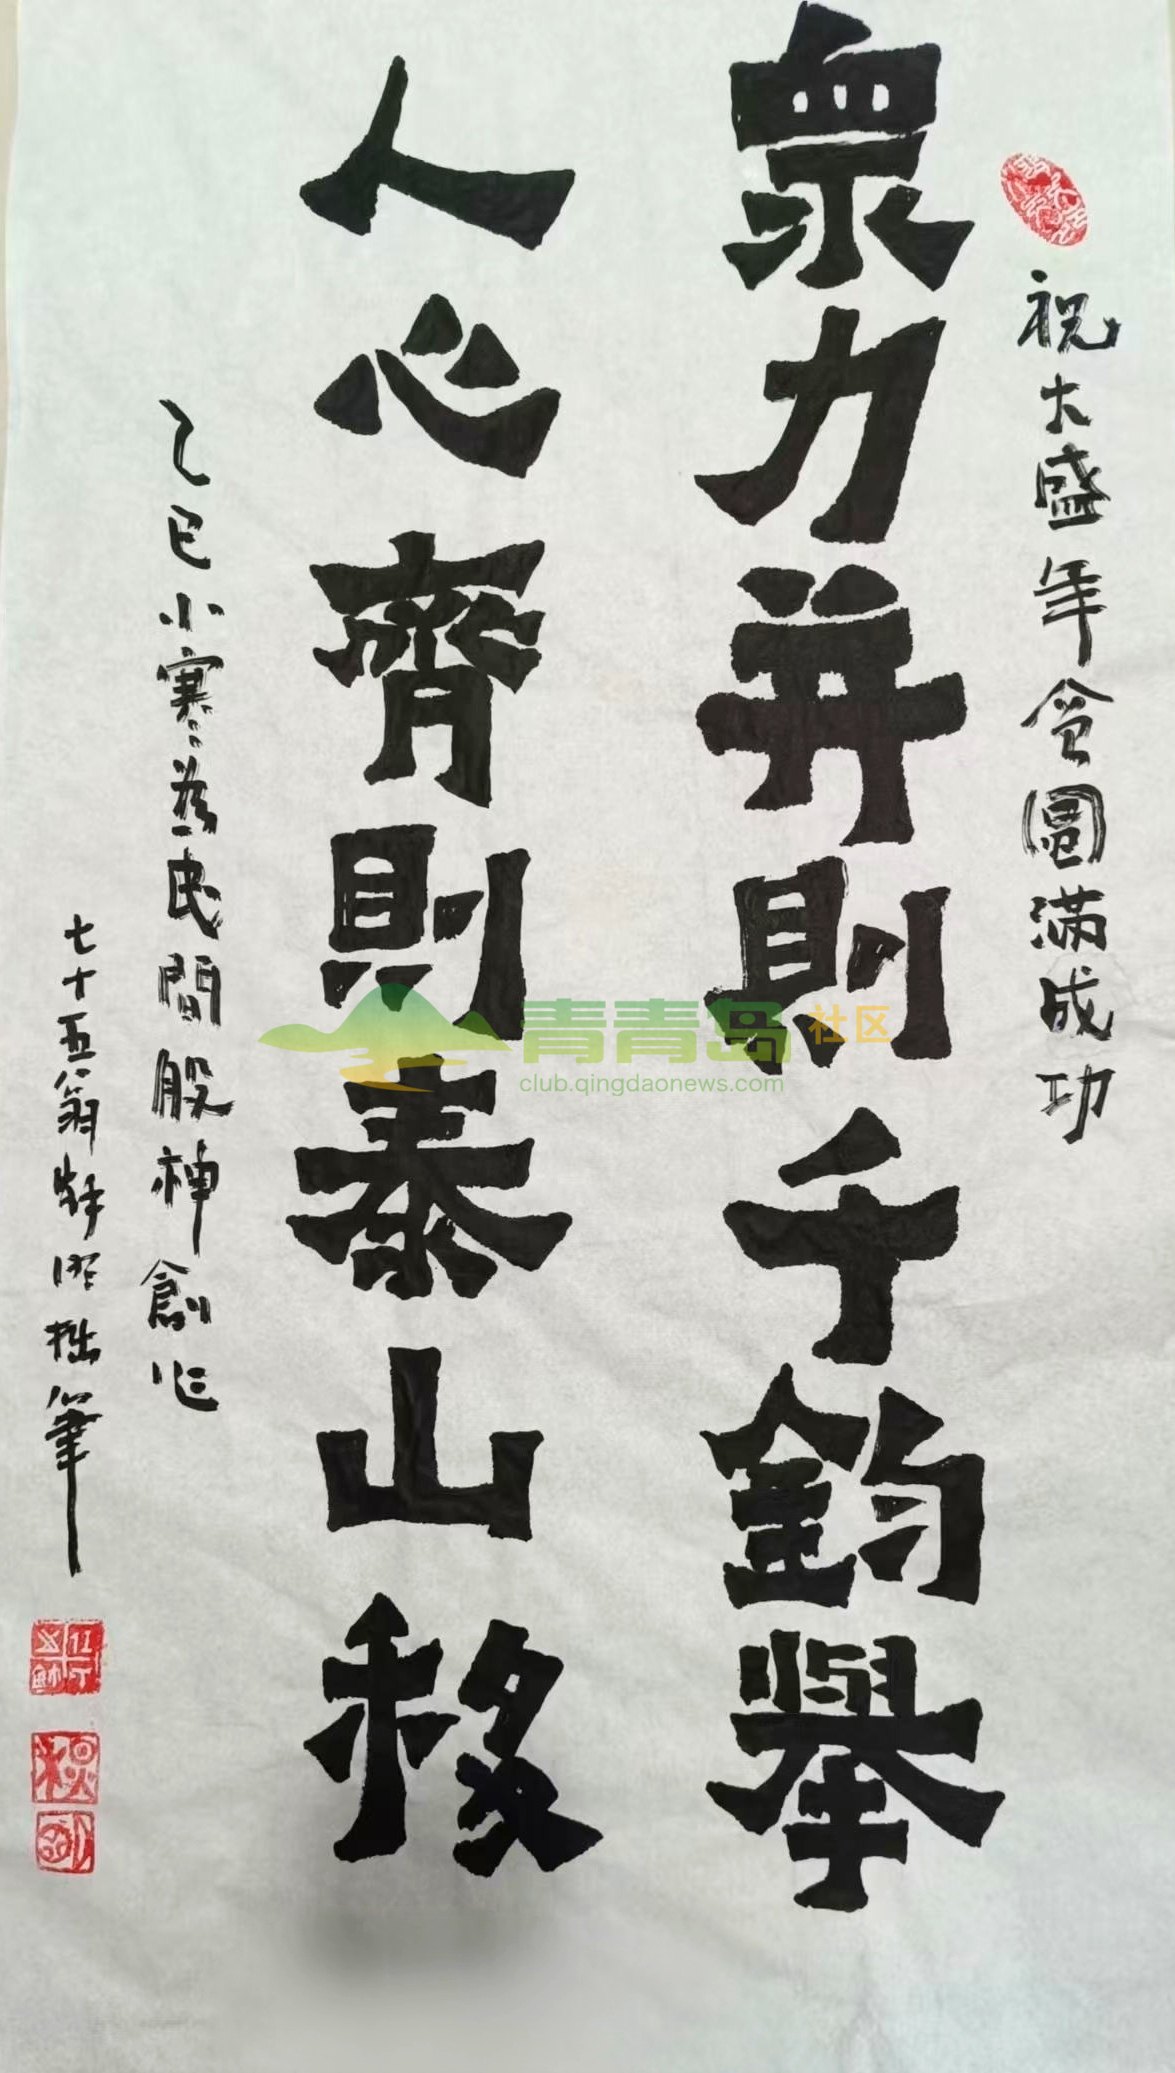 祝大盛年会圆满成功
眾力并則千鈞舉
人心齊則泰山移
乙巳小寒 民間般神創作
七十五翁 拙筆
青青岛社区
club.qingdaonews.com